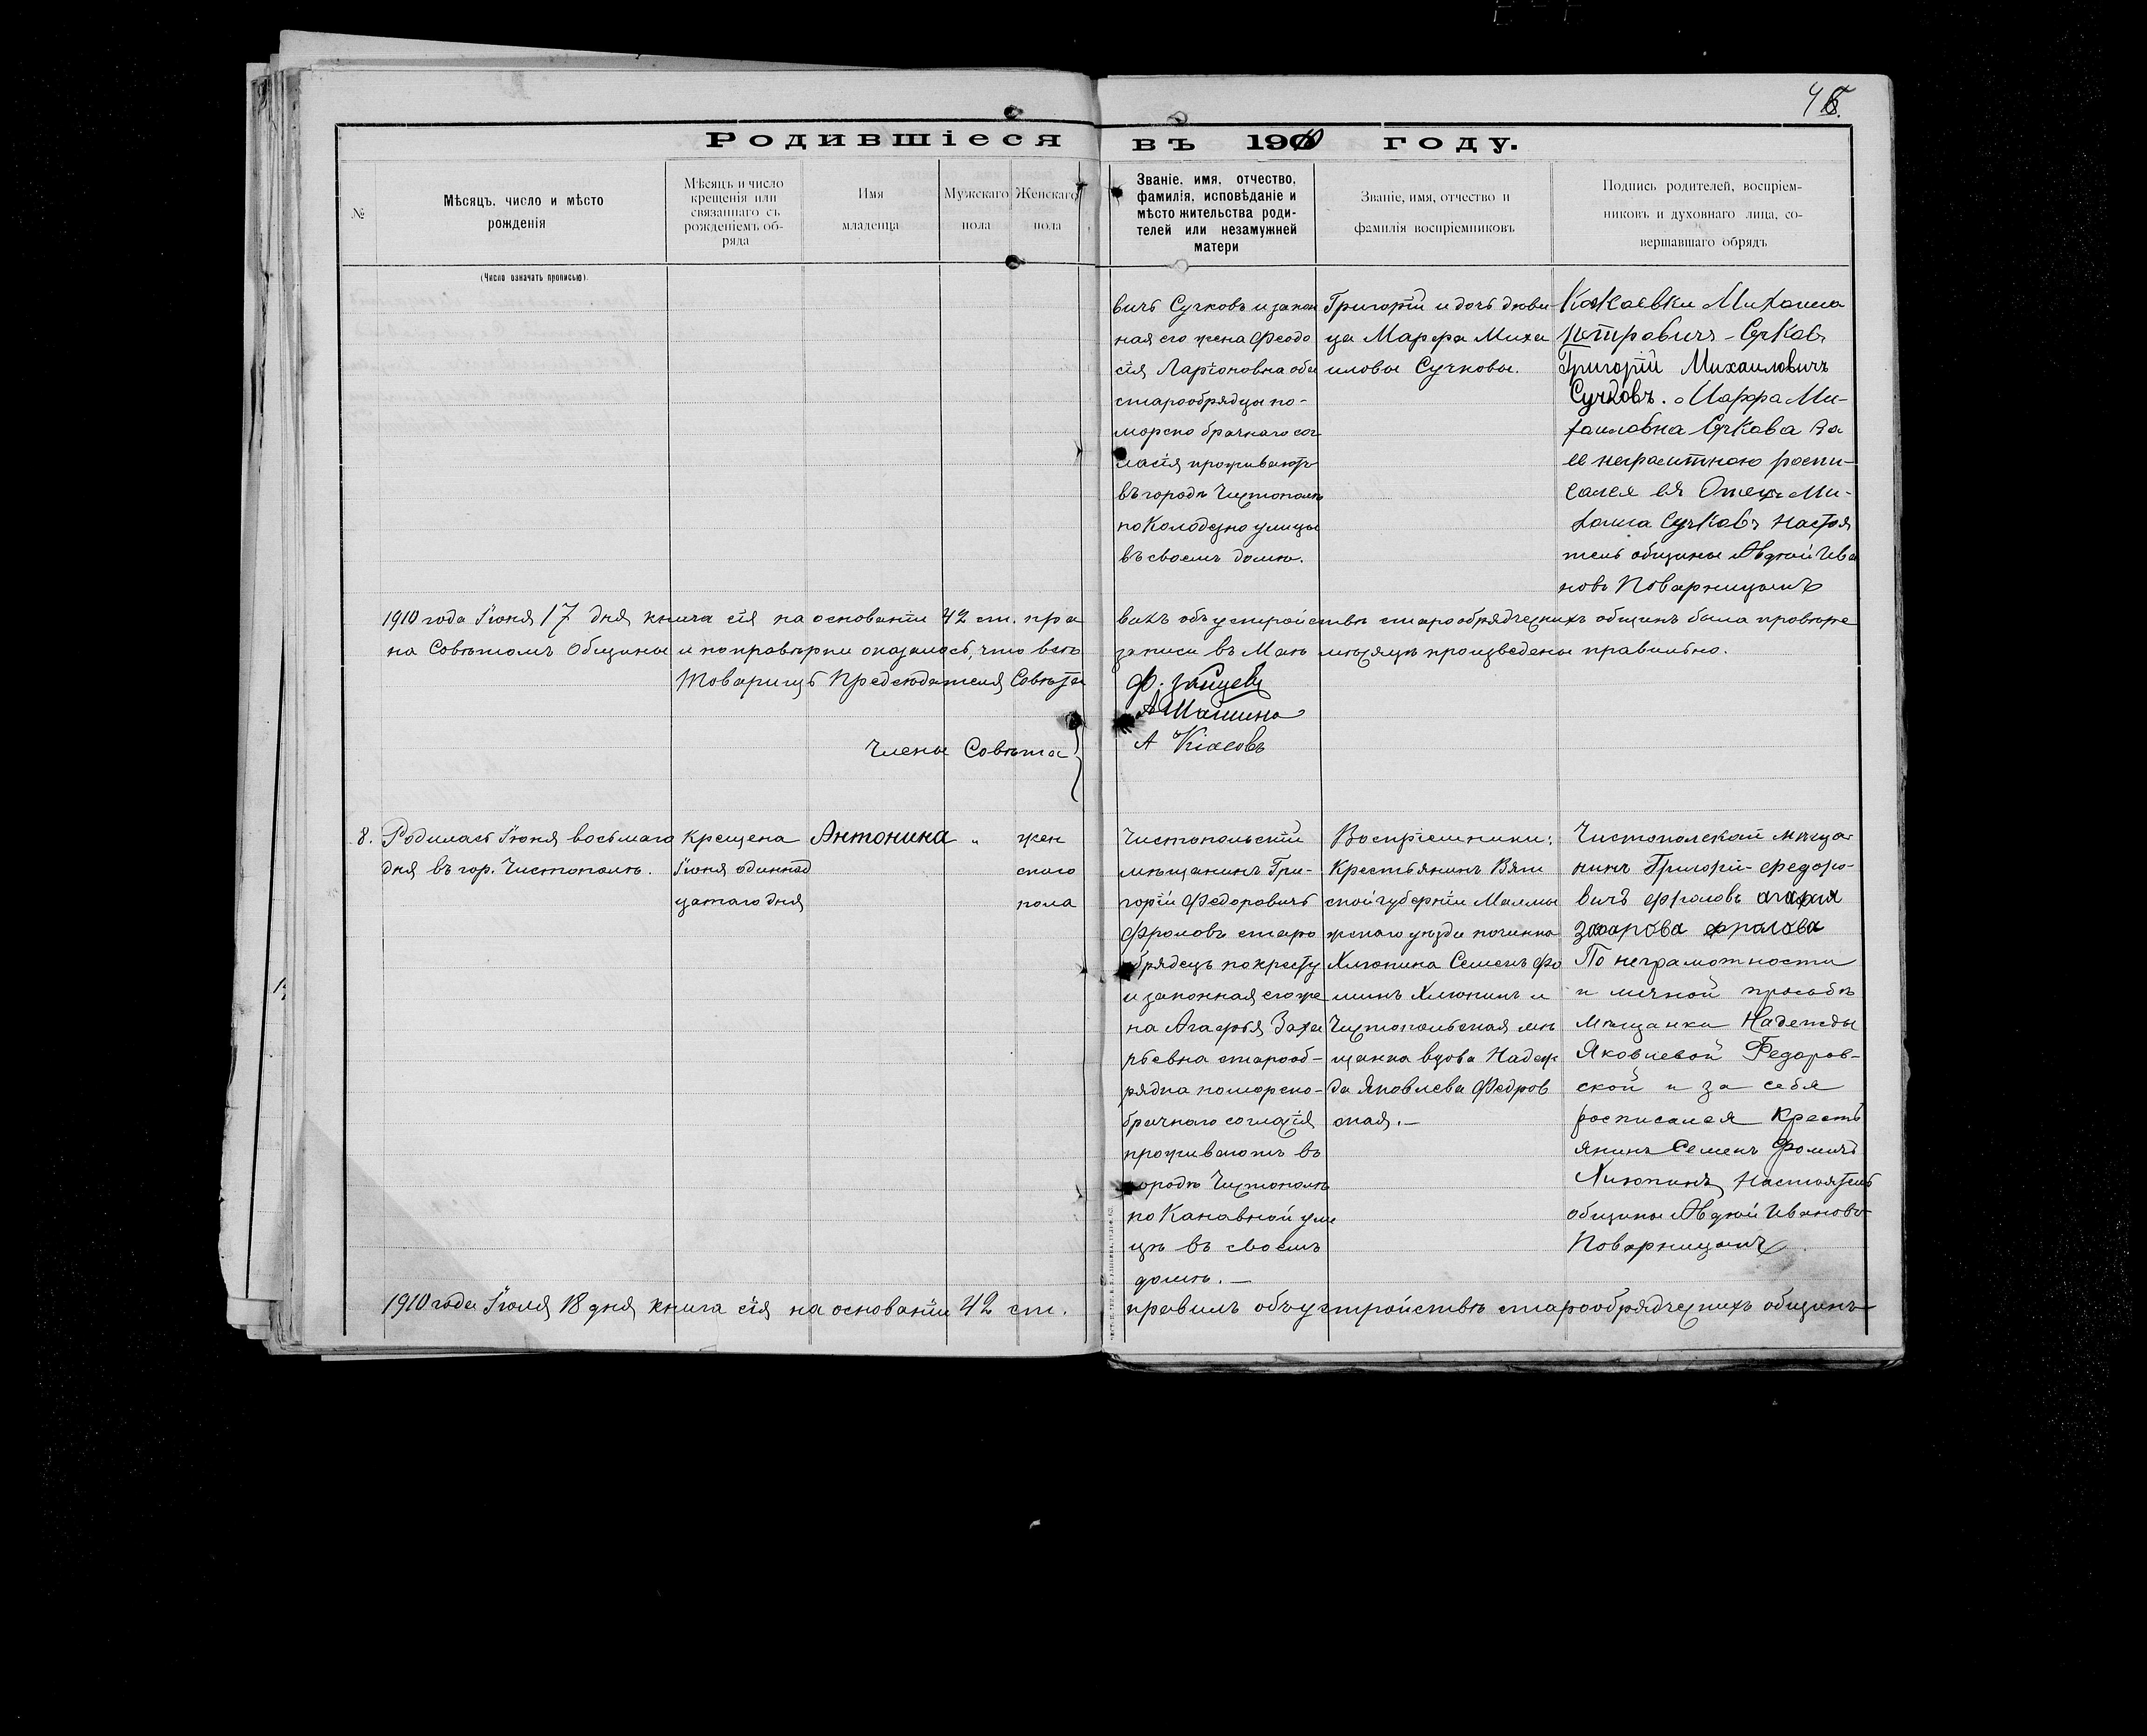 46.
Родившіеся въ 1910 году.
№
Мѣсяцъ, число и мѣсто
рожденія
Мѣсяцъ и число
крещенія или
связаннаго съ
рожденіемъ об-
ряда
Имя
младенца
Мужскаго
пола
Женскаго
пола
Званіе, имя, отчество,
фамилія, исповѣданіе и
мѣсто жительства роди-
телей или незамужней
матери
Званіе, имя, отчество и
фамилія воспріемниковъ
Подпись родителей, воспріем-
никовъ и духовнаго лица, со-
вершавшаго обрядъ
(Число означать прописью).
вичъ Сучковъ и закон
ная его жена Феодо
сія Ларіоновна оба
старообрядцы по-
морско брачнаго сог
ласія проживаютъ
въ городѣ Чистополѣ
по Колодезно улицы
въ своемъ домѣ.
Григорій и дочь дѣви
ца Марфа Миха
иловы Сучковы.
Михаила
Петровичъ Сучковъ
Григорій Михаиловичъ
Сучковъ. Марфа Ми-
хаиловна Сучкова За
ее неграмтною роспи-
сался ея Отецъ Ми-
хаила Сучковъ Настоя
тель общины Авдѣй Ива
новъ Поварницынъ
1910 года Іюня 17 дня книга сія на основаніи 42 ст. пра вилъ объ устройствѣ старообрядческихъ общинъ была провѣре
на Совѣтомъ Общины и по провѣрки оказалось, что всѣ записи въ Маѣ мѣсяцѣ произведены правильно.
Товарищъ Предсѣдателя Совѣта Ф. Зайцевъ
Члены Совѣта
8.
Родилась Іюня восьмаго
дня въ гор. Чистополѣ.
Крещена
Іюня одиннад
цатаго дня
Антонина
"
жен
скаго
пола
Чистопольскій
мѣщанинъ Гри-
горій Федоровичъ
Фроловъ старо
обрядецъ по кресту
и законная его же
на Агафья Заха
рьевна старооб-
рядка поморско-
брачнаго согласія
проживаютъ въ
городѣ Чистополѣ
по Канавной ули
цѣ въ своемъ
домѣ.—
Воспріемники:
Крестьянинъ Вят
ской губерніи Малмы
жскаго уѣзда починка
Хлюпина Семенъ Фо
минъ Хлюпинъ и
Чистопольская мѣ
щанка вдова Надеж
да Яковлева Федров
ская.—
Чистополской мѣща-
нинъ Григорій Федоро-
вичъ Фроловъ агафия
захарова фролова
По неграмотности
и личной просьбѣ
мѣщанки Надежды
Яковлевой Федоров-
ской и за себя
росписался Кресть
янинъ Семенъ Фомичъ
Хлюпинъ, Настоятель
общины Авдѣй Ивановъ
Поварницынъ
1910 года Іюля 18 дня книга сія на основаніи 42 ст. правилъ объ устройствѣ старообрядческихъ общинъ